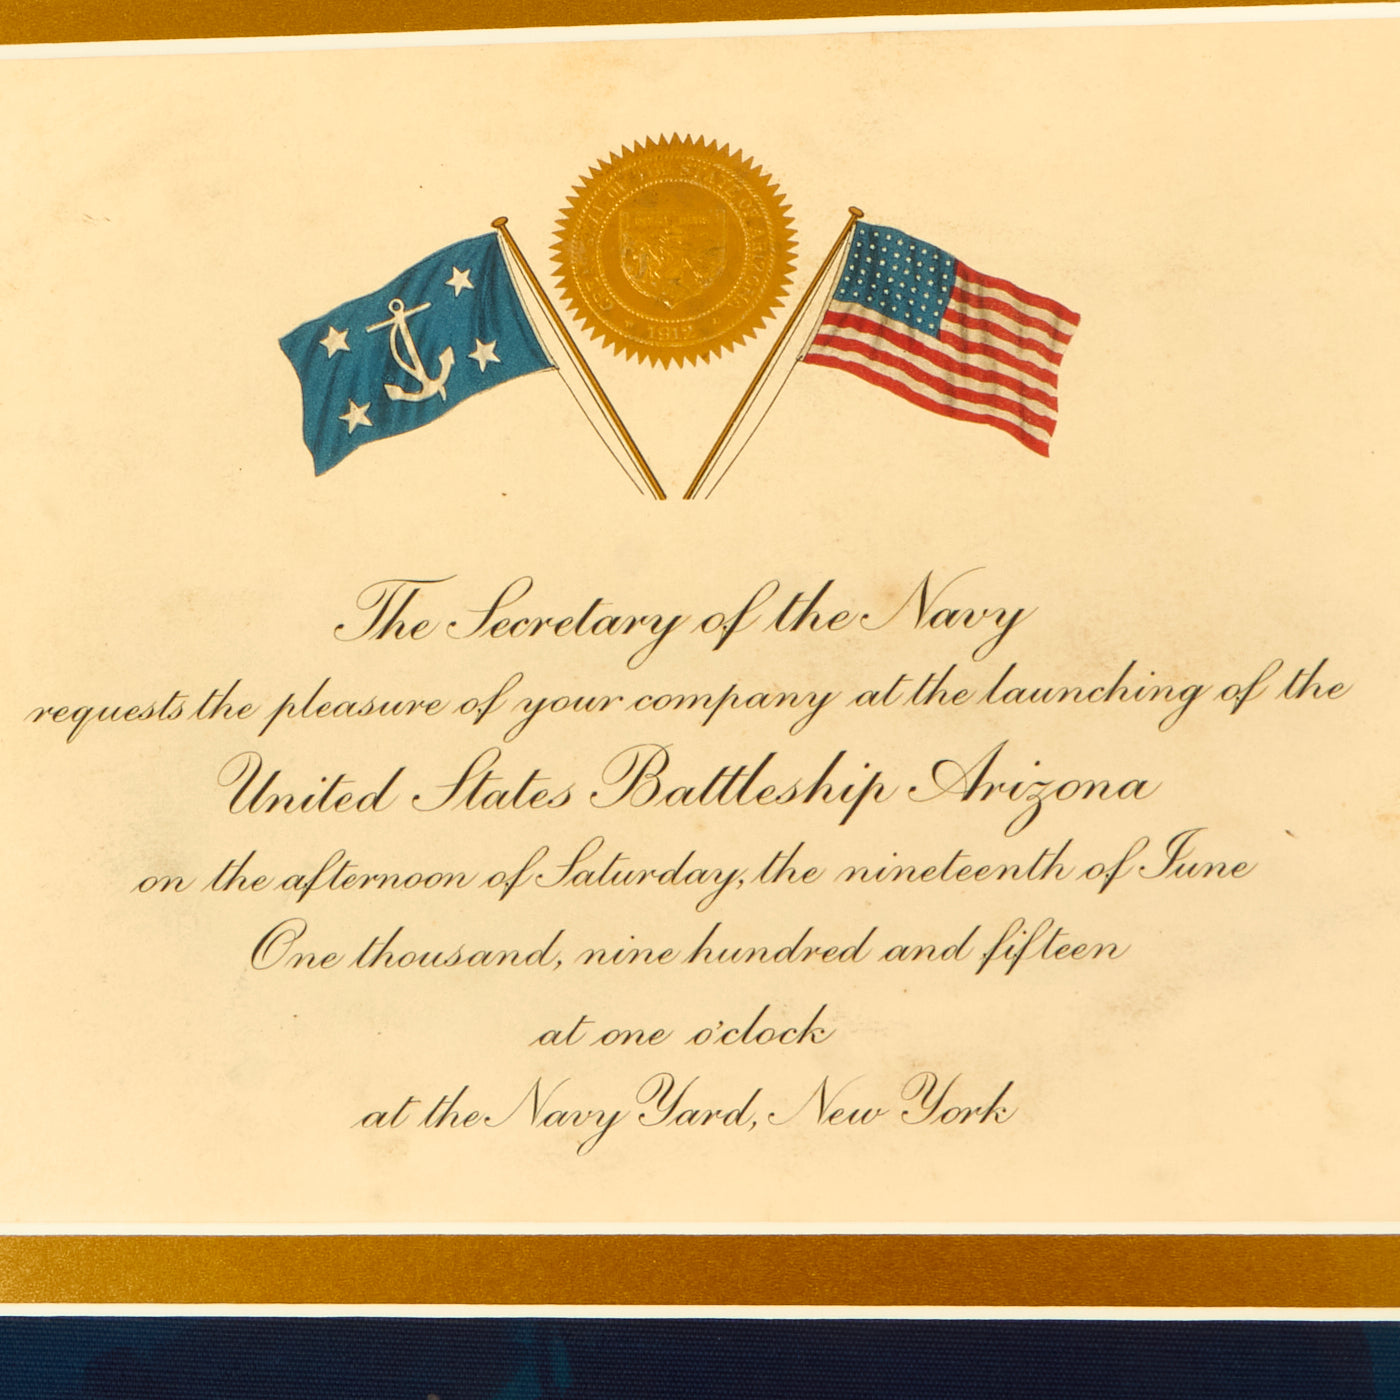 GREAT SEAL OF THE STATE OF ARIZONA
1912
The Secretary of the Navy
requests the pleasure of your company at the launching of the
United States Battleship Arizona
on the afternoon of Saturday, the nineteenth of June
One thousand, nine hundred and fifteen
at one o'clock
at the Navy Yard, New York